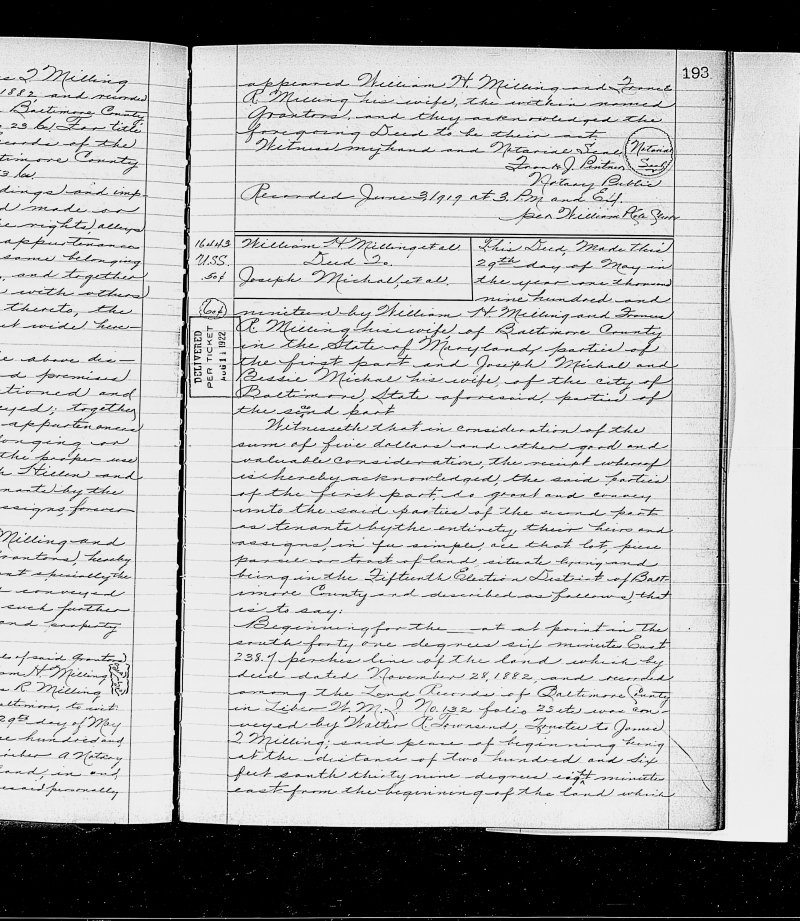 s I Milling
1882 and recorded
Baltimore County
o 23 &c. For title
ecords of the
timore County
3 &c.
dings and imp-
d made or
e rights, alleys
appurtenance
same belonging
, and together
with others
thereto, the
et wide here-
e above des-
d premises
tioned and
eyed; together
appurtenances
longing or
the proper use
h Stellen and
nants by the
ssigns, forever
Milling and
rantors, hereby
nt specially the
conveyed
such further
and property
ls of said Grantors
am H. Milling
s R Milling
altimore, to wit:
29th day of May
ne hundred and
scriber A Notary
land, in and
resaid personally
193
appeared William H. Milling and Frances
R Milling his wife, the within named
Grantors, and they acknowledged the
foregoing Deed to be their act.
Witness my hand and Notarial Seal
Frank J. Pintner
Notary Public
Notarial
Seal
Recorded June 3, 1919 at 3 P.M. and Ex'd.
per William P. Cole Clerk
U.S.S.
50¢
60¢
DELIVERED
PER TICKET
AUG 11 1922
William H. Milling et al
Deed To.
Joseph Michal, et al.
This Deed, Made this
29th day of May in
the year one thousand
nine hundred and
nineteen by William H Milling and Frances
R Milling his wife, of Baltimore County
in the State of Maryland, parties of
the first part and Joseph Michal and
Bessie Michal his wife, of the city of
Baltimore, State aforesaid, parties of
the second part
Witnesseth that in consideration of the
sum of five dollars and other good and
valuable consideration, the receipt whereof
is hereby acknowledged, the said parties
of the first part do grant and convey
unto the said parties of the second part
as tenants by the entirety, their heirs and
assigns, in fee simple, all that lot, piece
parcel or tract of land, situate lying and
being in the Fifteenth Election District of Balt-
imore County and described as follows, that
is to say:
Beginning for the __ at at point in the
south forty one degrees six minutes East
238.7 perches line of the land which by
deed dated November 28, 1882, and recorded
among the Land Records of Baltimore County
in Liber W. M. J No. 132 folio 23 etc was con-
veyed by Walter R Townsend, Trustee to James
I Milling; said place of beginning being
at the distance of two hundred and six
feet south thirty nine degrees eight minutes
east from the beginning of the land which